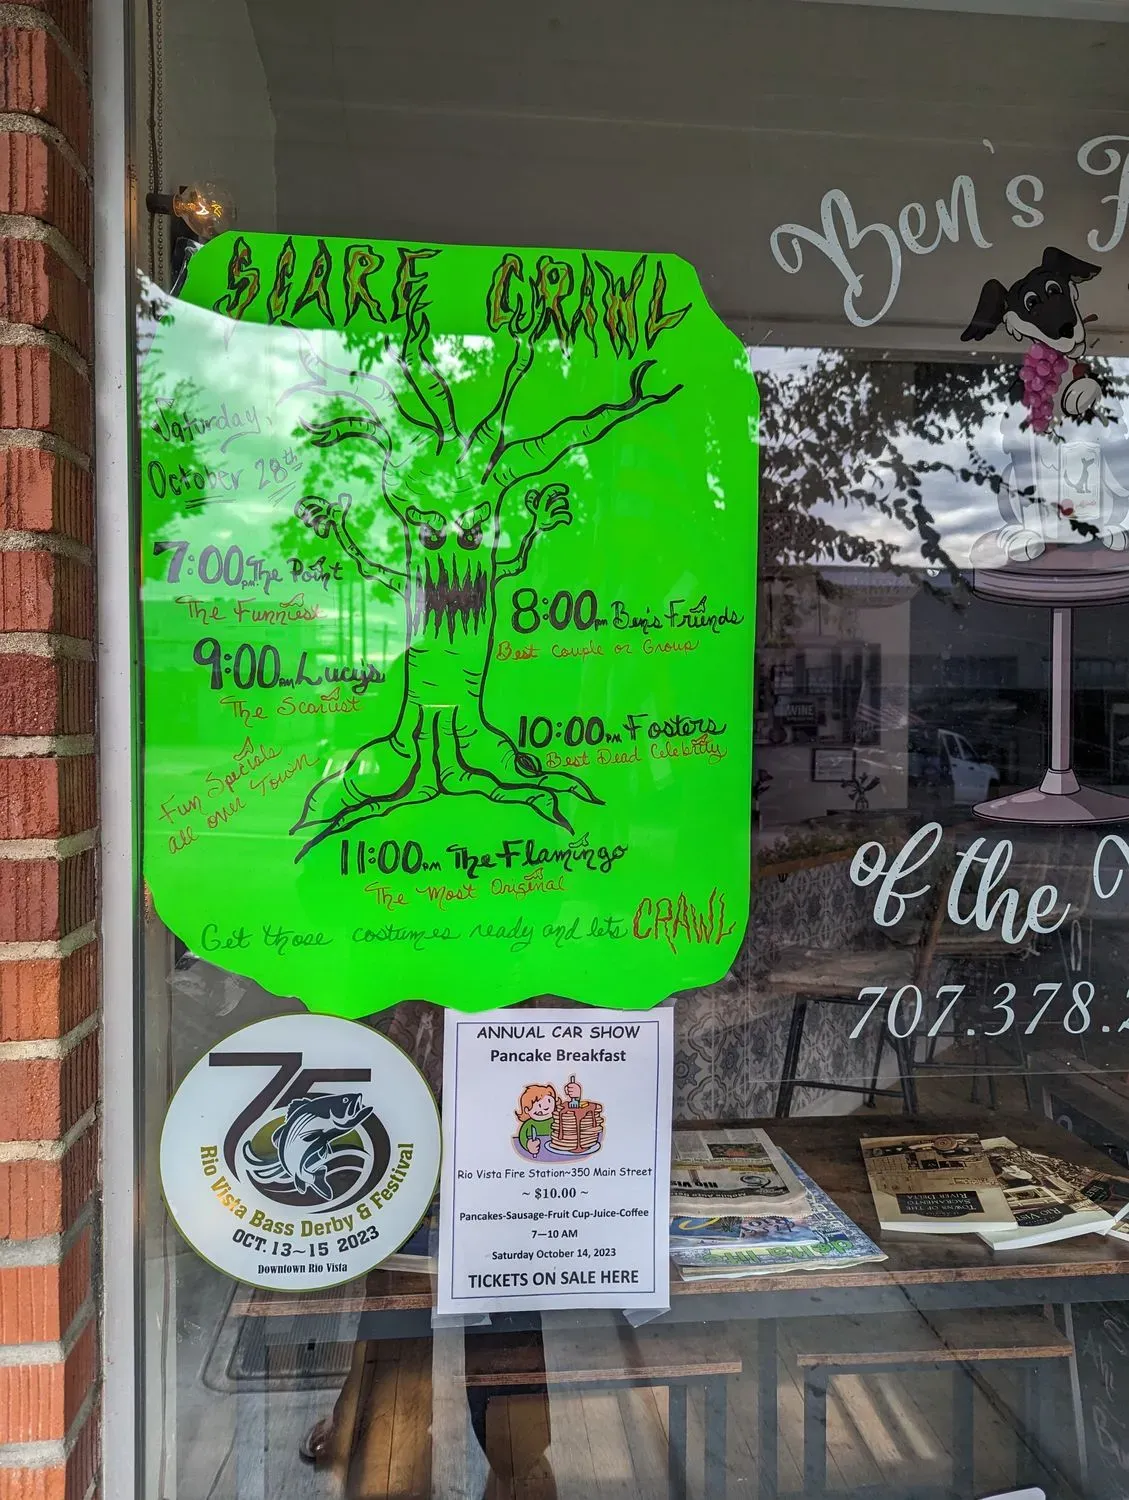 SCARE CRAWL
Saturday,
October 28th
7:00pm The Point
The Funniest
8:00pm Ben's Friends
Best Couple or Group
9:00pm Lucy's
The Scariest
10:00pm Fosters
Best Dead Celebrity
Fun Specials
all over Town
11:00pm The Flamingo
The Most Original
Get those costumes ready and lets CRAWL
Ben's
of the
707.378.
75
Rio Vista Bass Derby & Festival
OCT. 13~15 2023
Downtown Rio Vista
ANNUAL CAR SHOW
Pancake Breakfast
Rio Vista Fire Station~350 Main Street
~ $10.00 ~
Pancakes-Sausage-Fruit Cup-Juice-Coffee
7—10 AM
Saturday October 14, 2023
TICKETS ON SALE HERE
TOWNS OF THE
SACRAMENTO
RIVER DELTA
RIO VISTA